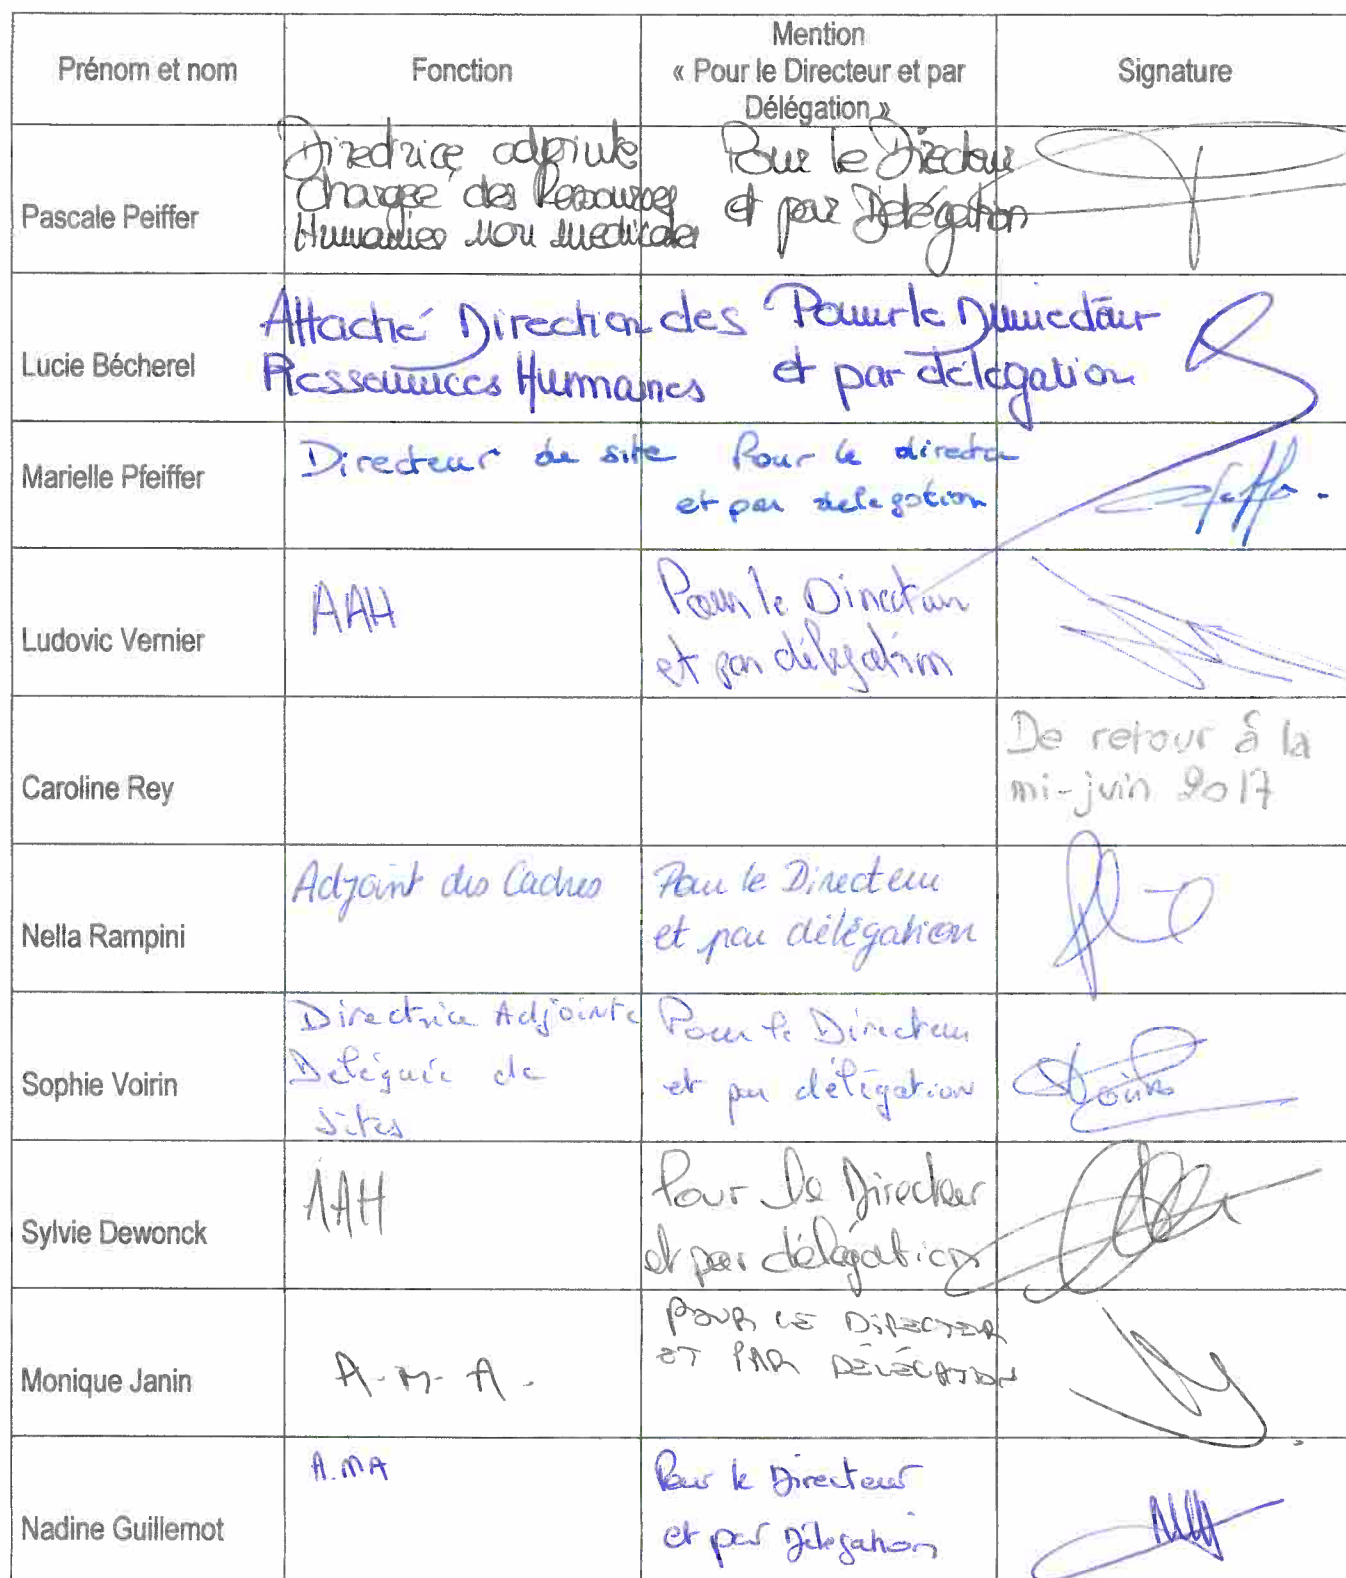 Prénom et nom
Fonction
Mention
« Pour le Directeur et par
Délégation »
Signature
Pascale Peiffer
Directrice adjointe
Chargée des Ressources
Humaines non médicales
Pour le Directeur
et par Délégation
Lucie Bécherel
Attaché Direction des
Ressources Humaines
Pour le Directeur
et par délégation
Marielle Pfeiffer
Directeur de site
Pour le directeur
et par delegation
Ludovic Vernier
AAH
Pour le Directeur
et par délégation
Caroline Rey
De retour à la
mi-juin 2017
Nella Rampini
Adjoint des Cadres
Pour le Directeur
et par délégation
Sophie Voirin
Directrice Adjointe
Déléguée de
Sites
Pour le Directeur
et par délégation
Voirin
Sylvie Dewonck
AAH
Pour Le Directeur
et par délégation
Monique Janin
A-M-A.
POUR LE DIRECTEUR
ET PAR DÉLÉGATION
Nadine Guillemot
A.MA
Pour le Directeur
et par Délégation